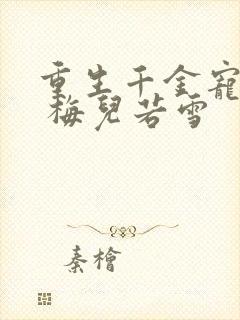 重生千金寵
梅兒若雪
秦檜